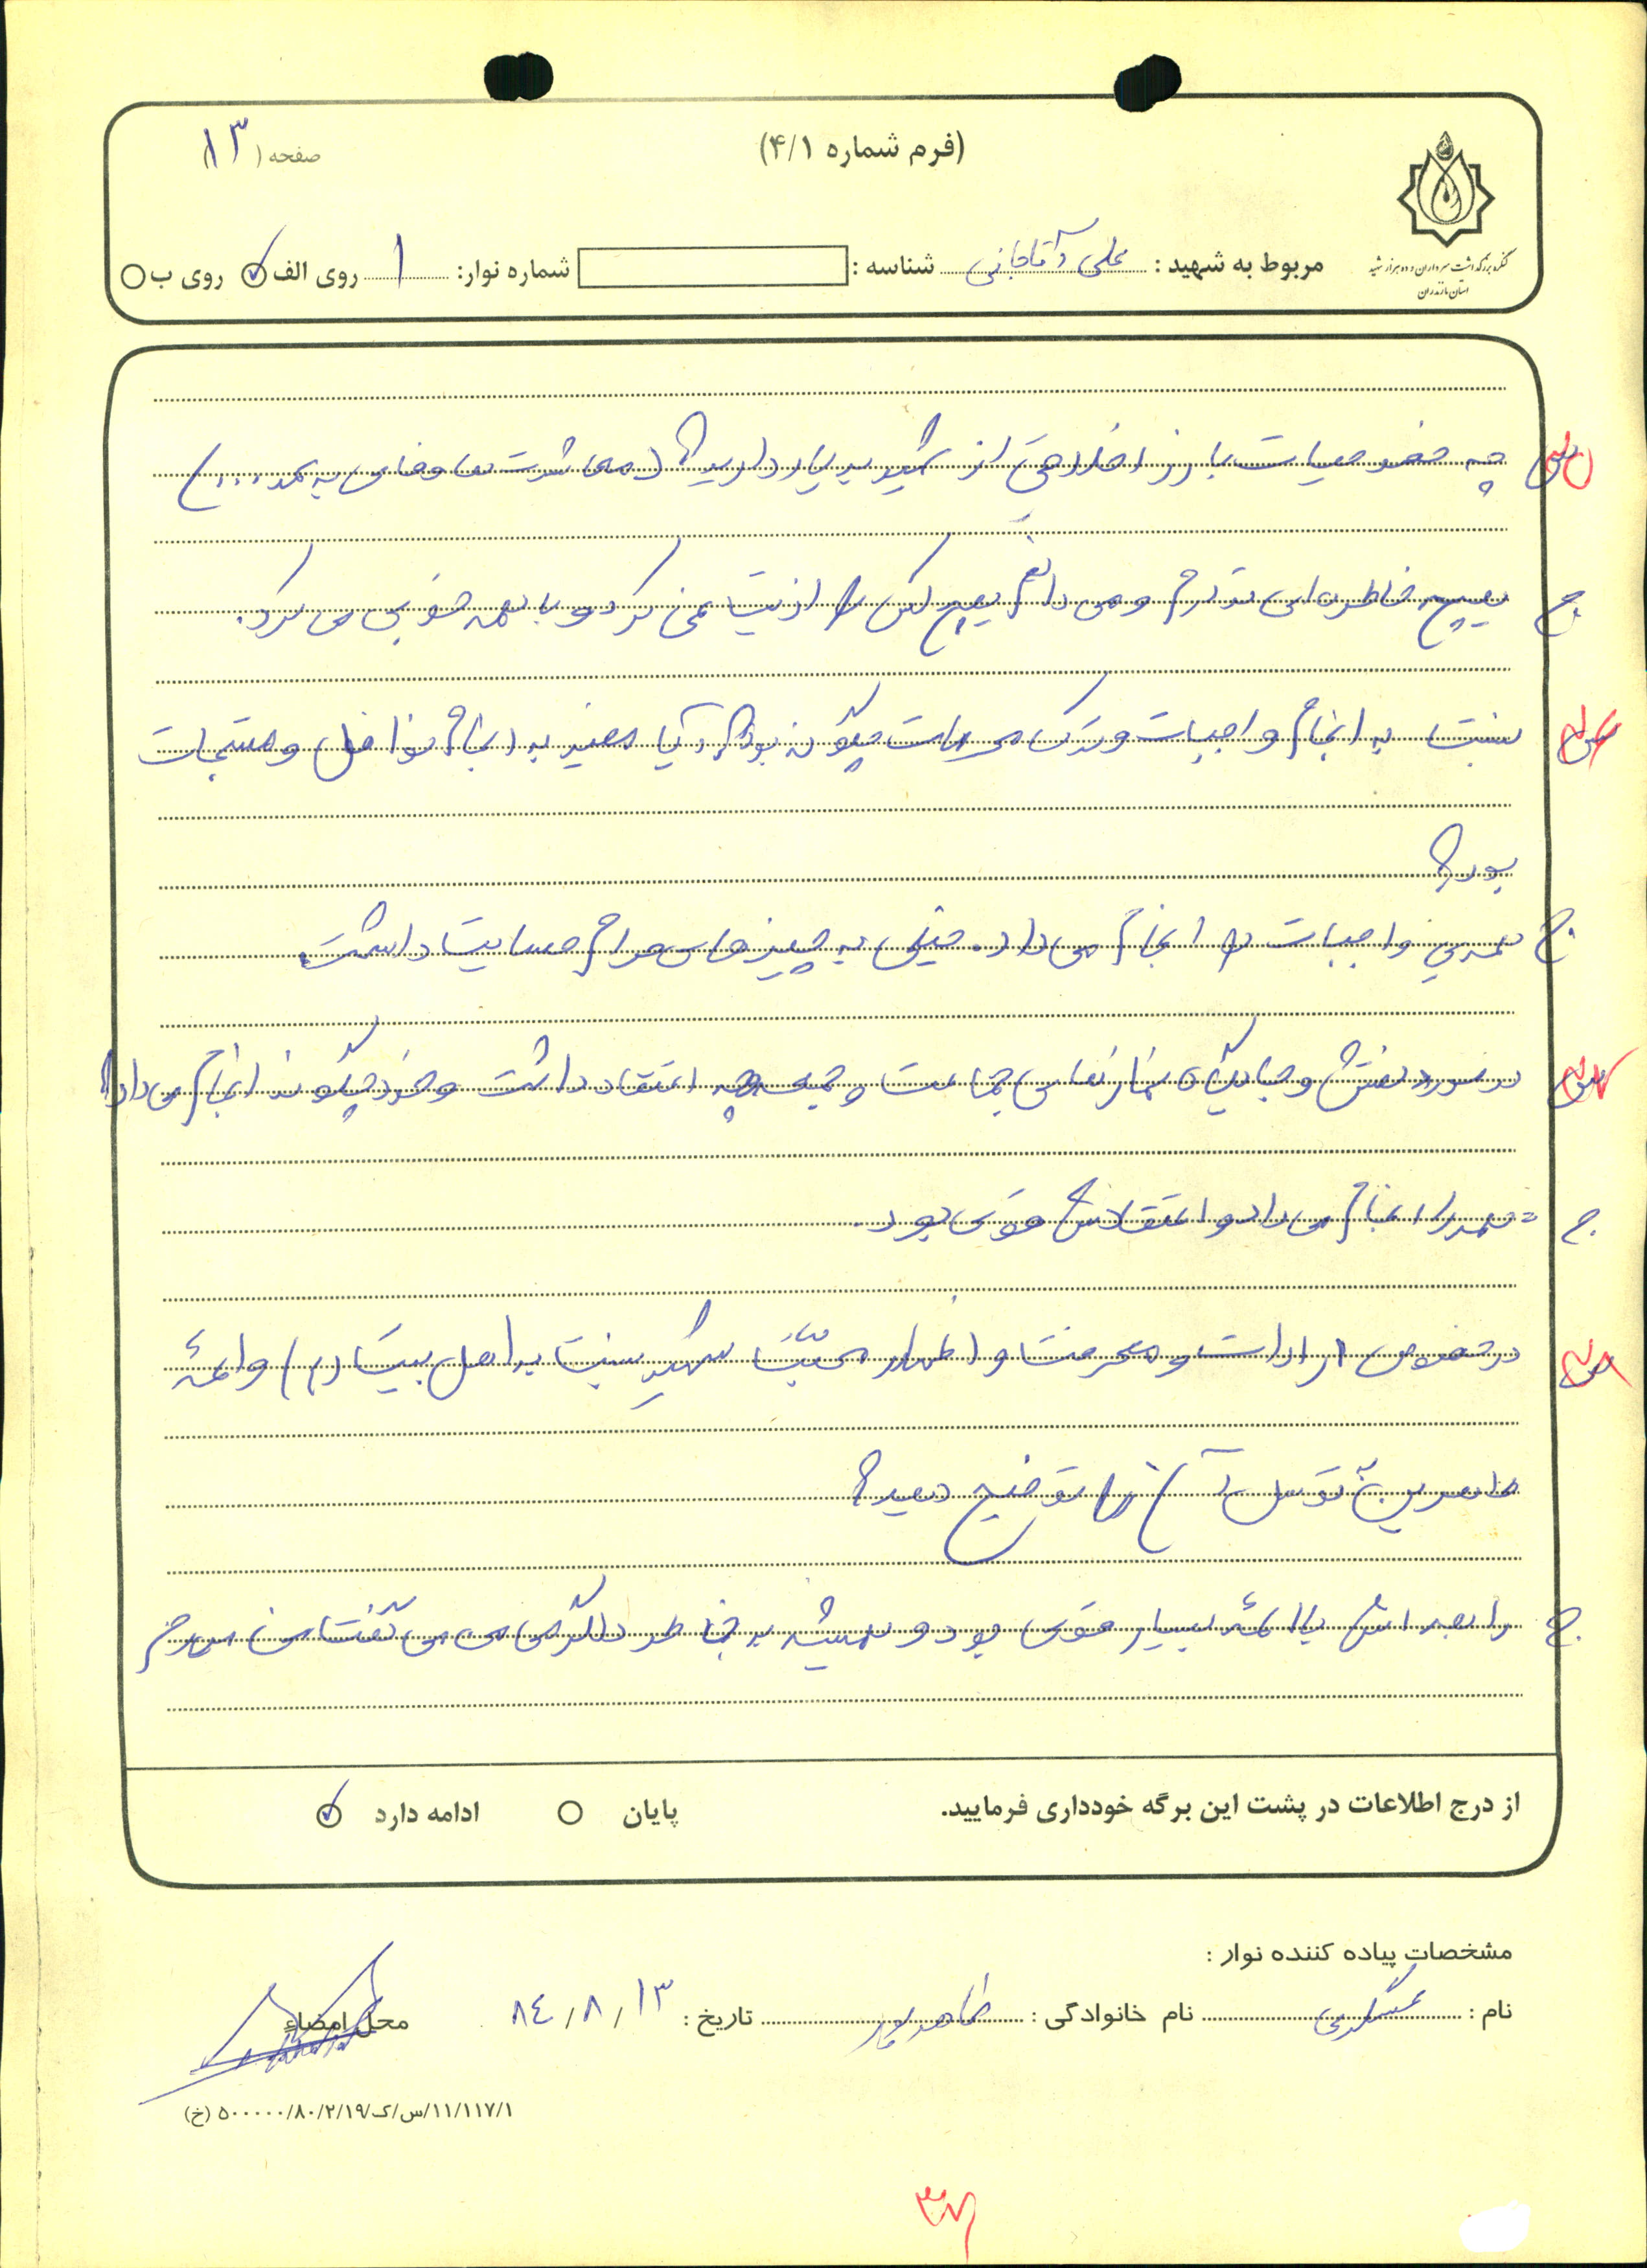 (فرم شماره ۴/۱)
صفحه (۱۳
کنگره بزرگداشت سرداران و ده هزار شهید
استان مازندران
مربوط به شهید : علی آقاجانی شناسه : شماره نوار: ۱ روی الف روی ب
س چه خصوصیات بارز اخلاقی از شهید به یاد دارید؟ (معاشرت ها وفای به عهد ....)
ج هیچ خاطره‌ای ندارم و می دانم هیچ کس را اذیت نمی کرد و با همه خوبی می کرد.
س نسبت به انجام واجبات و ترک محرمات چگونه بود؟ آیا مقید به انجام نوافل و مستحبات
بود؟
ج همه‌ی واجبات را انجام می داد. خیلی به چیزهای حرام حساسیت داشت.
س در مورد نقش و جایگاه نمازهای جماعت و جمعه چه اعتقاد داشت و خود چگونه انجام می داد؟
ج = همه را انجام می داد و اعتقادش قوی بود.
س در خصوص ارادت و معرفت و اظهار محبّت شهید نسبت به اهل بیت (ع) وائمهٔ
طاهرین توسل آنها توضیح دهید؟
ج رابطه اش با ائمه بسیار قوی بود و همیشه به خاطر دلگرمی می گفت من میرم
از درج اطلاعات در پشت این برگه خودداری فرمایید.
پایان ادامه دارد
مشخصات پیاده کننده نوار :
نام : عسگری نام خانوادگی : طاهرپور تاریخ : ۸۴/۸/۱۳ محل امضاء
۱۱/۱۱۷/۱/س/ک/۵۰۰۰۰۰/۸۰/۲/۱۹ (خ)